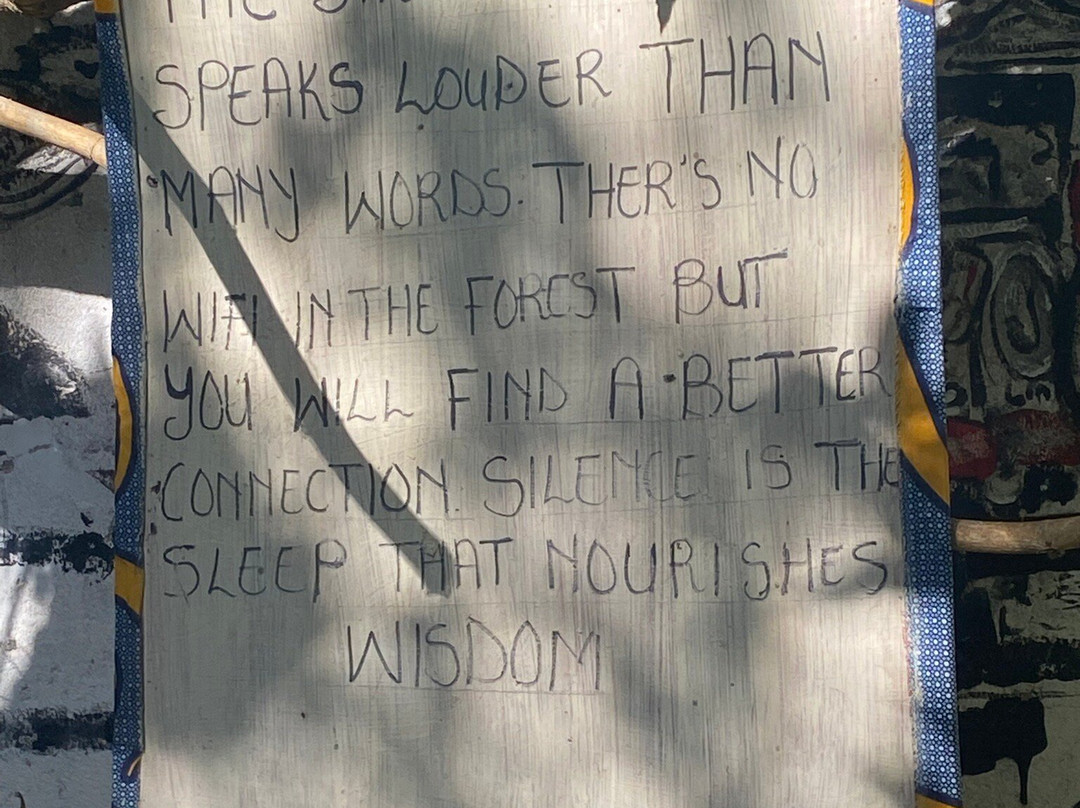 THE
SPEAKS LOUDER THAN
MANY WORDS. THER'S NO
WIFI IN THE FOREST BUT
YOU WILL FIND A BETTER
CONNECTION. SILENCE IS THE
SLEEP THAT NOURISHES
WISDOM